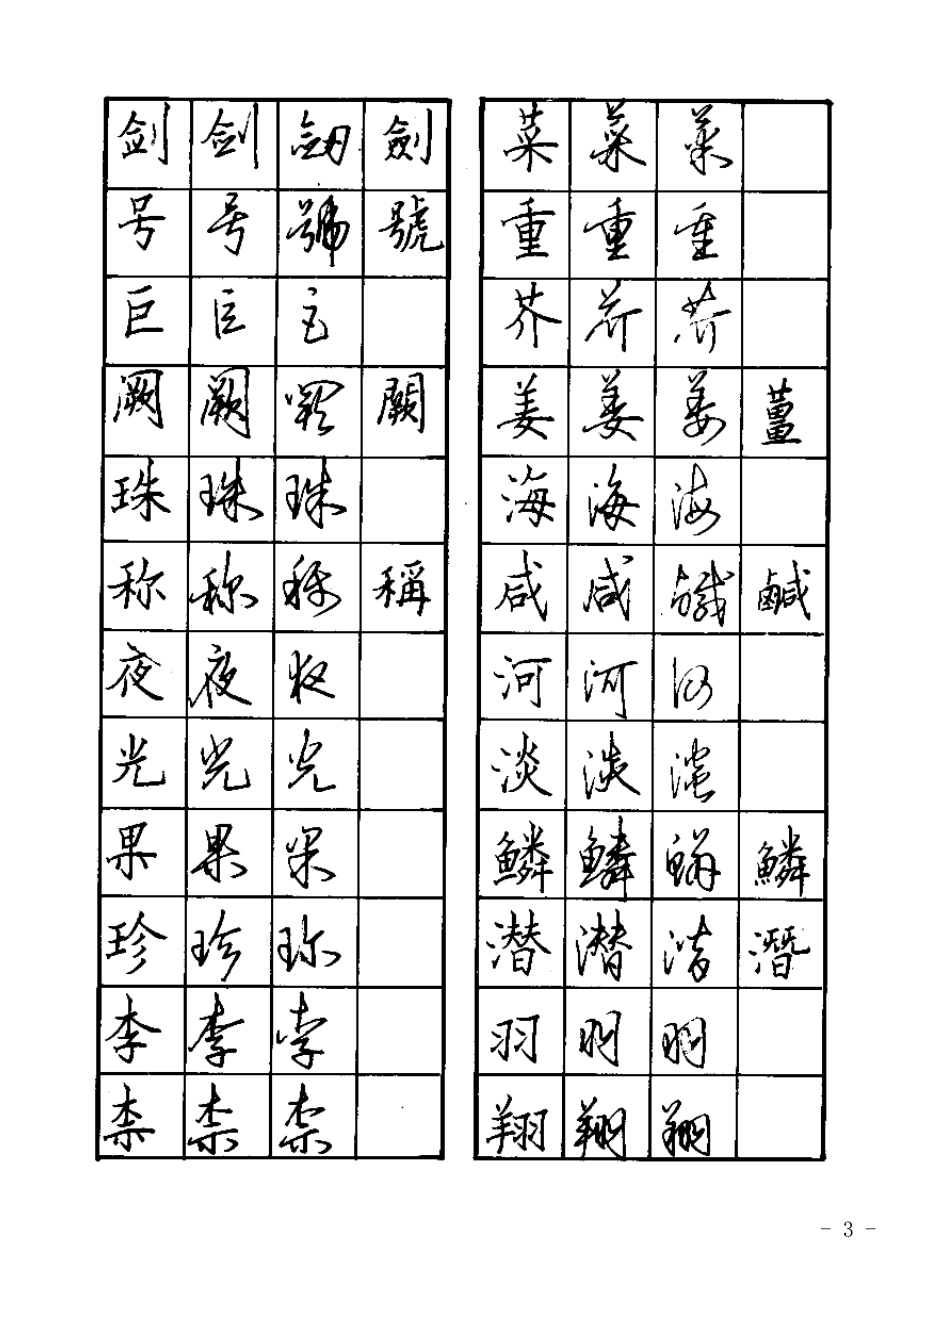 剑 剑 劍 劍
号 号 號 號
巨 巨 巨
阙 阙 阙 闕
珠 珠 珠
称 称 称 稱
夜 夜 夜
光 光 光
果 果 果
珍 珍 珍
李 李 李
柰 柰 柰
菜 菜 菜
重 重 重
芥 芥 芥
姜 姜 姜 薑
海 海 海
咸 咸 鹹 鹹
河 河 河
淡 淡 淡
鳞 鳞 鳞 鱗
潜 潜 潜 潛
羽 羽 羽
翔 翔 翔
- 3 -